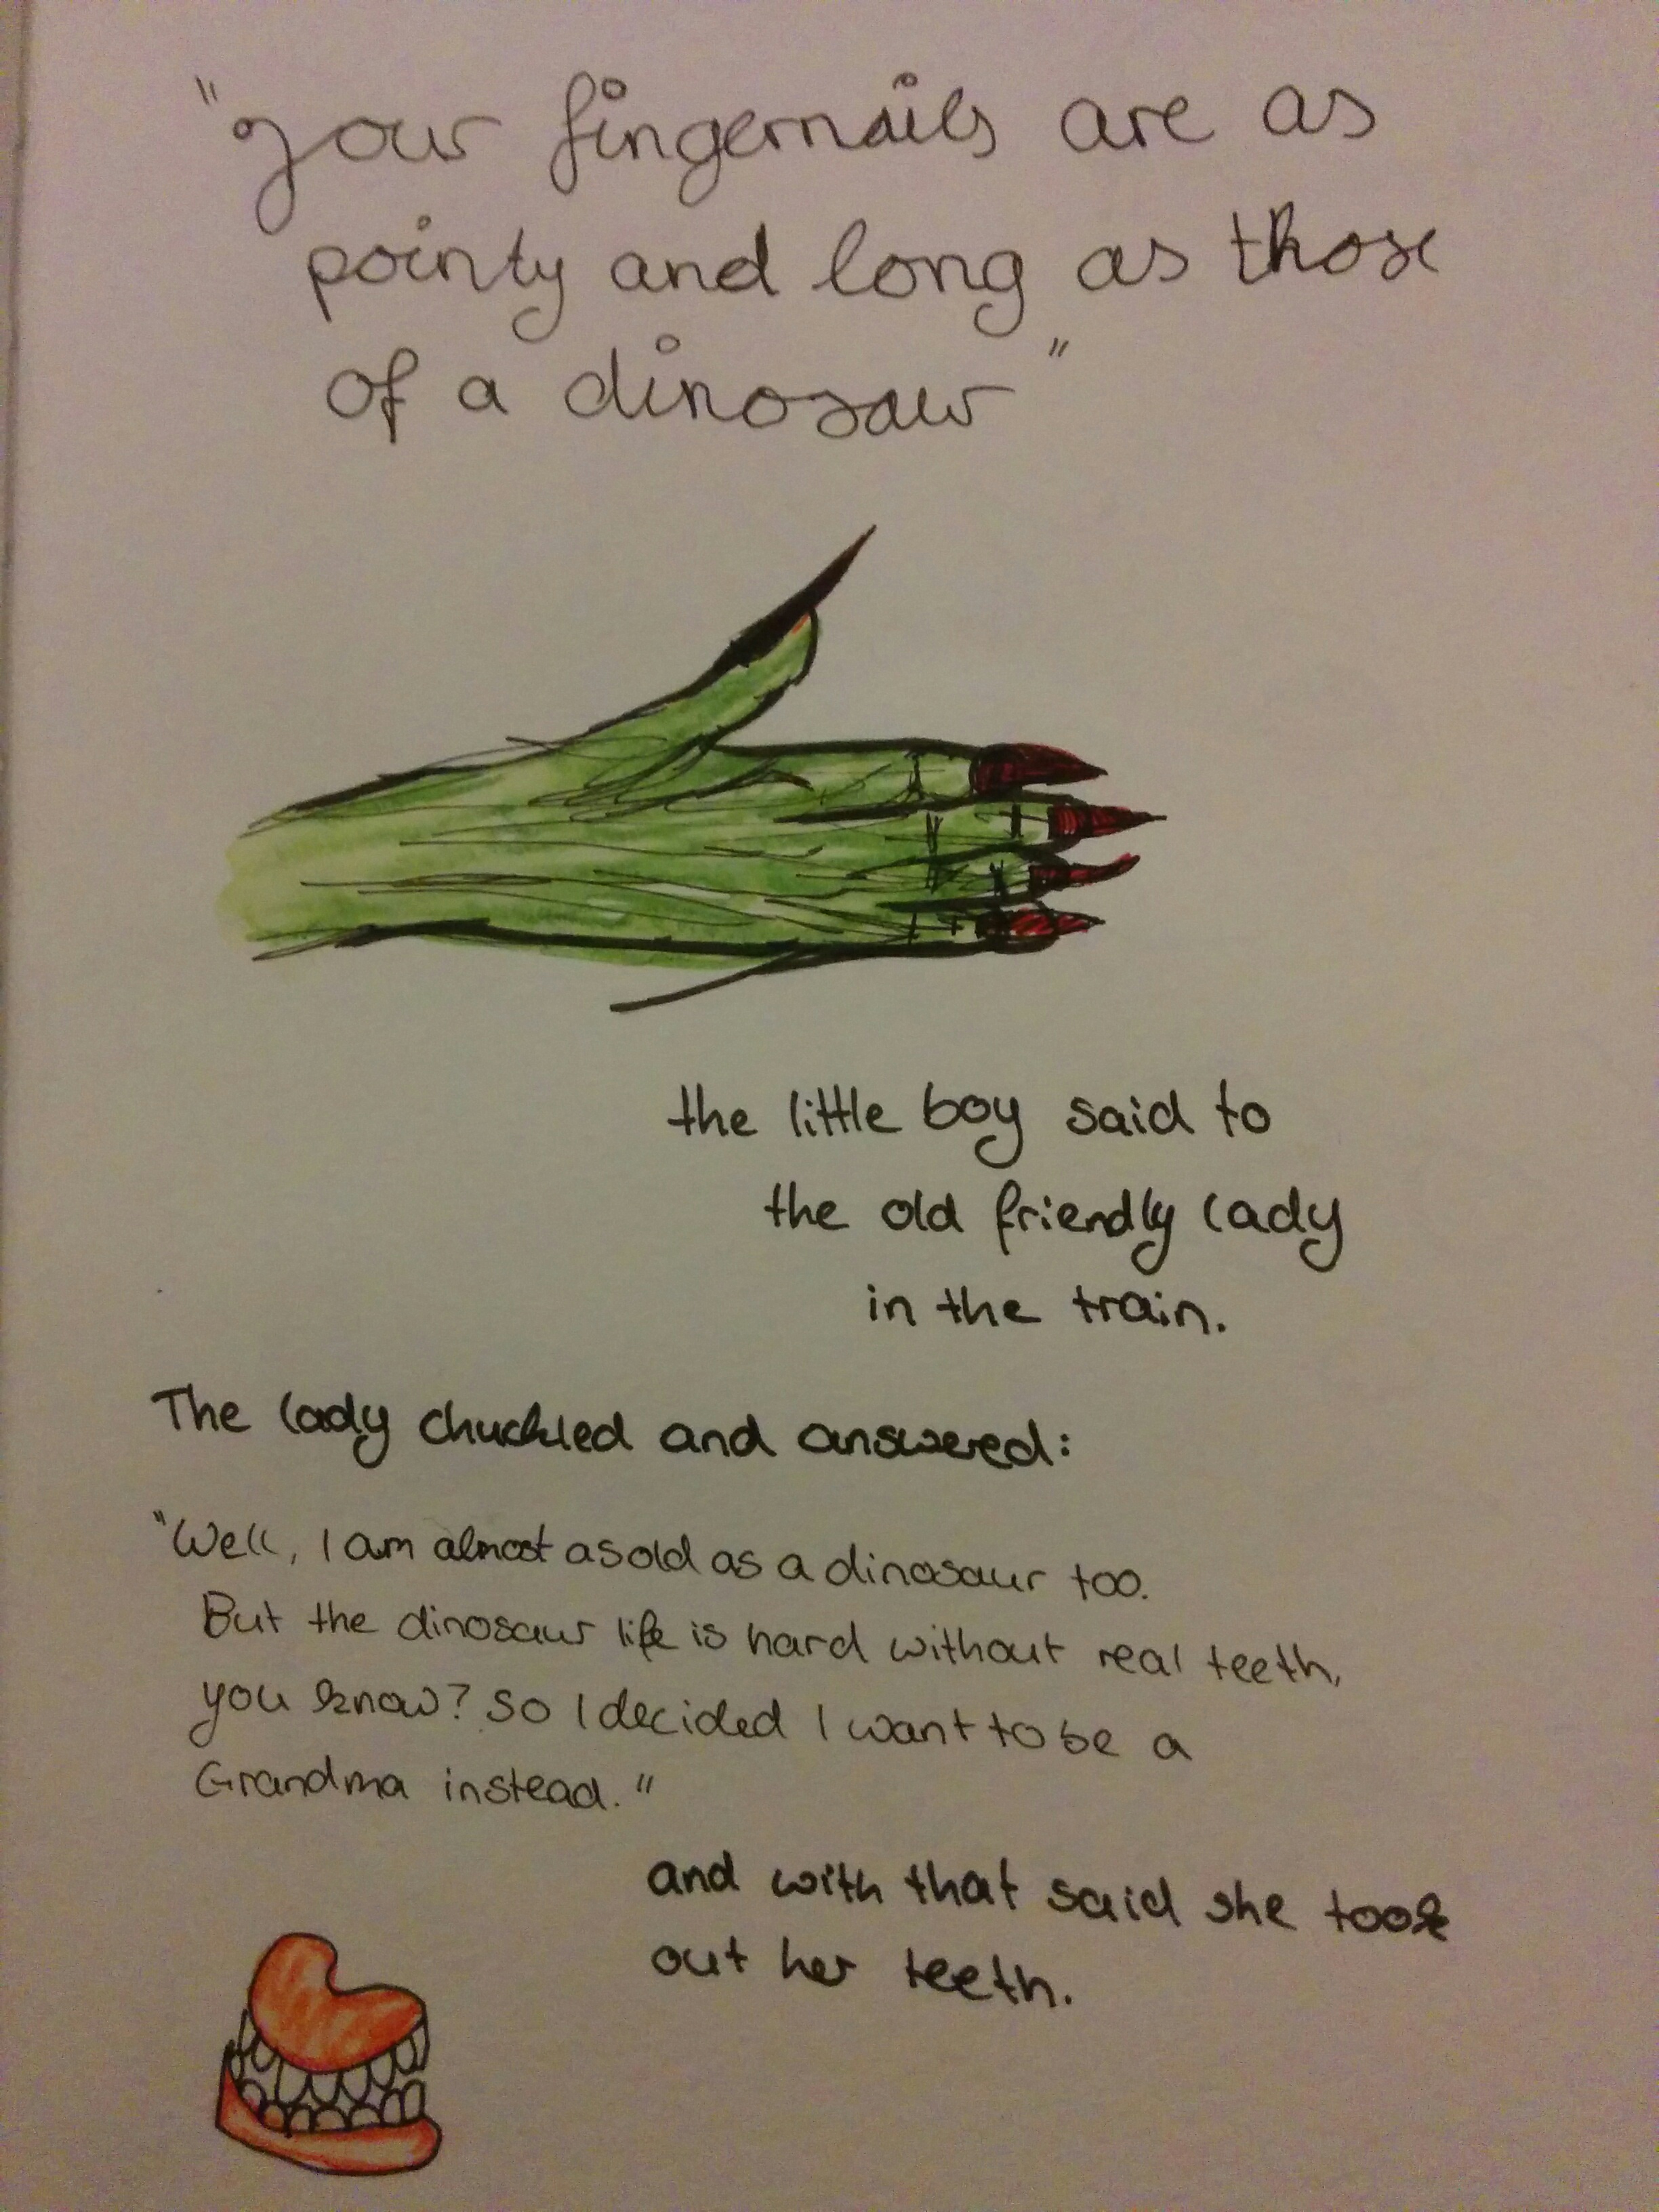 "your fingernails are as
pointy and long as those
of a dinosaur"
the little boy said to
the old friendly lady
in the train.
The lady chuckled and answered:
"Well, I am almost as old as a dinosaur too.
But the dinosaur life is hard without real teeth,
you know? So I decided I want to be a
Grandma instead."
and with that said she took
out her teeth.